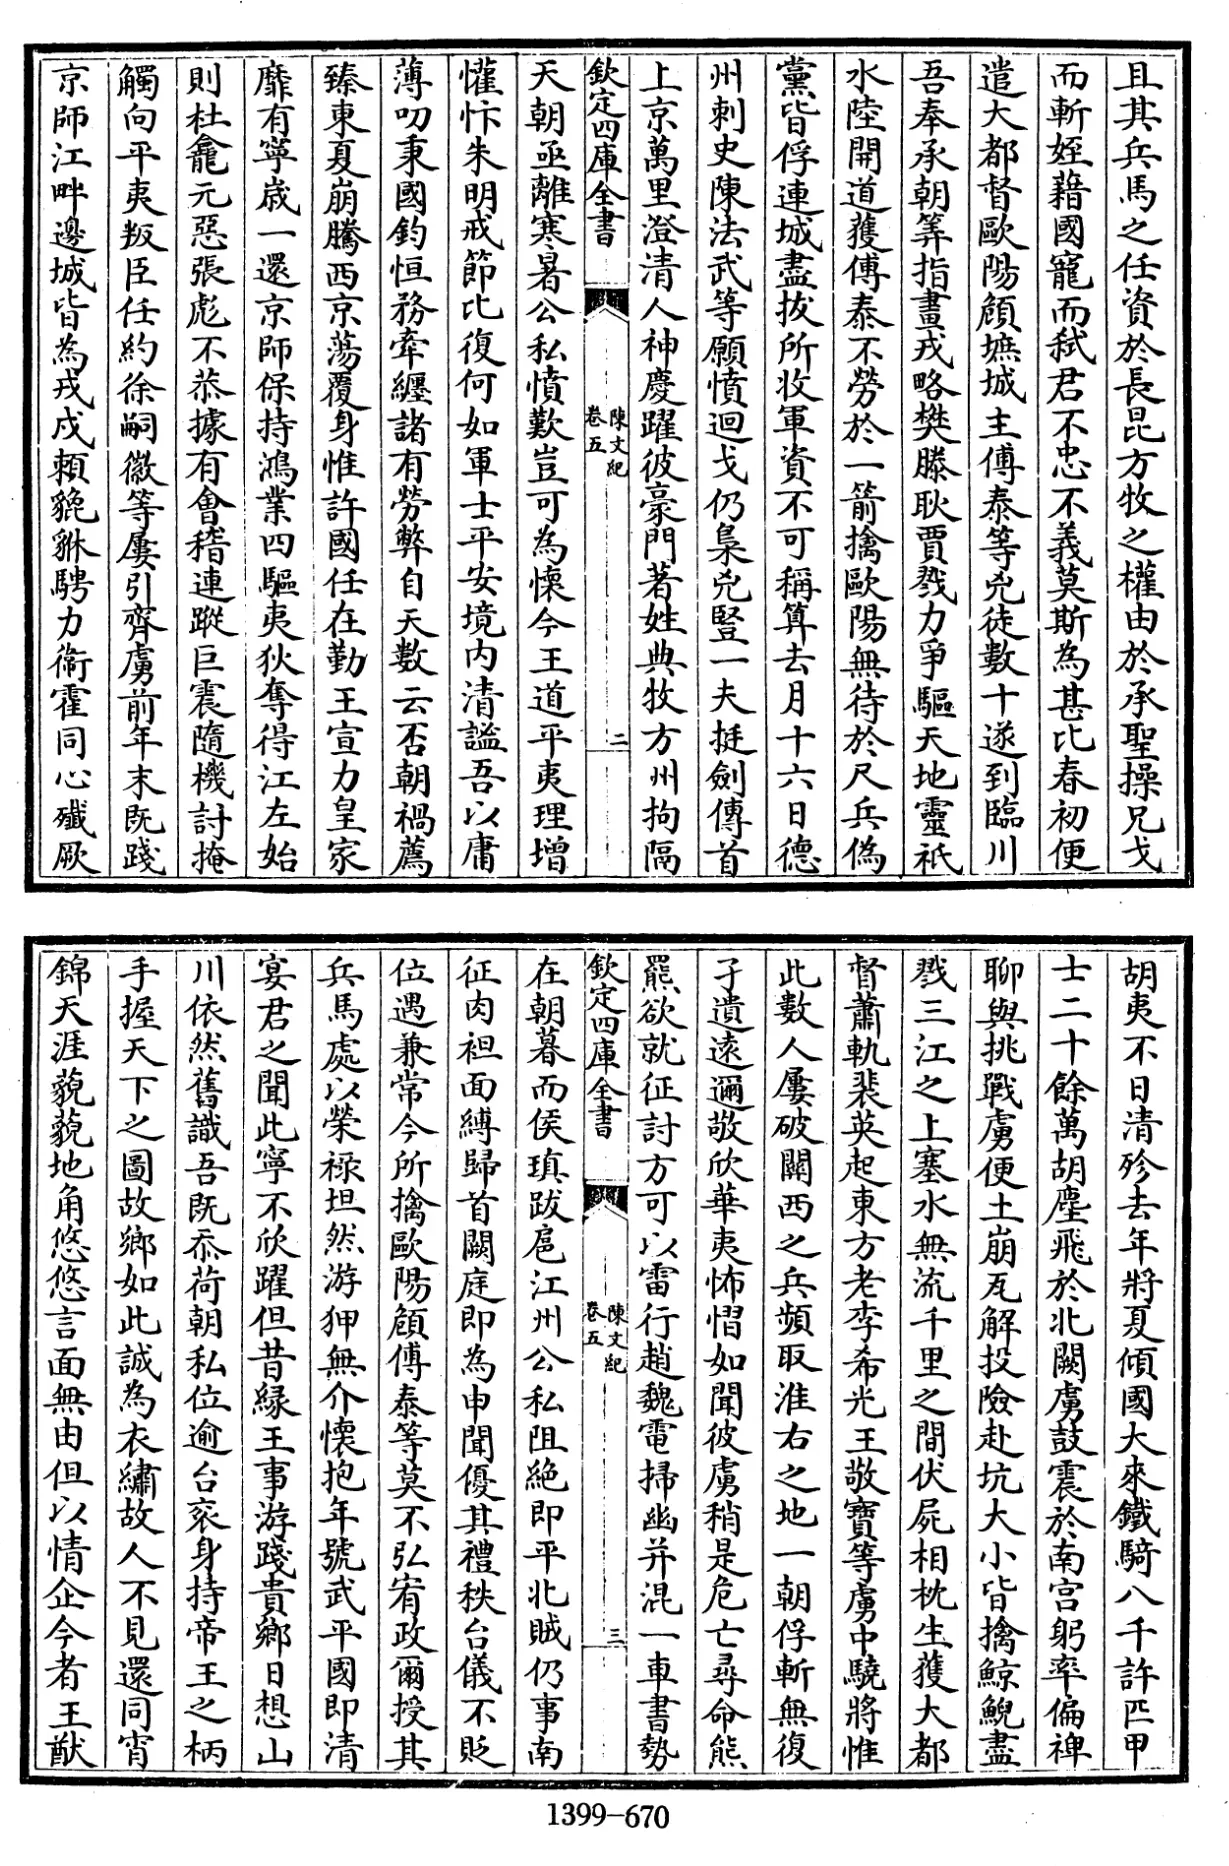 且其兵馬之任資於長昆方牧之權由於承聖操兄戈
而斬姪藉國寵而弑君不忠不義莫斯為甚比春初便
遣大都督歐陽頠塘城主傅泰等兇徒數十遂到臨川
吾奉承朝筭指畫戎略樊滕耿賈戮力爭驅天地靈祇
水陸開道獲傅泰不勞於一箭擒歐陽無待於尺兵偽
黨皆俘連城盡拔所收軍資不可稱算去月十六日德
州刺史陳法武等願憤迴戈仍梟兇豎一夫挺劍傳首
上京萬里澄清人神慶躍彼豪門著姓典牧方州拘隔
欽定四庫全書
陳文紀
卷五
二
天朝亟離寒暑公私憤歎豈可為懷今王道平夷理增
懽忭朱明戒節比復何如軍士平安境内清謐吾以庸
薄叨秉國鈞恒務牽纏諸有勞弊自天數云否朝禍薦
臻東夏崩騰西京蕩覆身惟許國任在勤王宣力皇家
靡有寧歲一還京師保持鴻業四驅夷狄奪得江左始
則杜龕元惡張彪不恭據有會稽連蹤巨震隨機討掩
觸向平夷叛臣任約徐嗣徽等屢引齊虜前年末既踐
京師江畔邊城皆為戎戍賴貔貅騁力衛霍同心殲厥
胡夷不日清殄去年將夏傾國大來鐵騎八千許匹甲
士二十餘萬胡塵飛於北闕虜鼓震於南宫躬率偏裨
聊與挑戰虜便土崩瓦解投險赴坑大小皆擒鯨鯢盡
戮三江之上塞水無流千里之間伏屍相枕生獲大都
督蕭軌裴英起東方老李希光王敬寶等虜中驍將惟
此數人屢破關西之兵頻取淮右之地一朝俘斬無復
孑遺遠邇敬欣華夷怖慴如聞彼虜稍是危亡尋命熊
羆欲就征討方可以雷行趙魏電掃幽并混一車書勢
欽定四庫全書
陳文紀
卷五
三
在朝暮而侯瑱跋扈江州公私阻絶即平北賊仍事南
征肉袒面縛歸首闕庭即為申聞優其禮秩台儀不貶
位遇兼常今所擒歐陽頠傅泰等莫不弘宥政爾授其
兵馬處以榮禄坦然游狎無介懷抱年號武平國即清
宴君之聞此寧不欣躍但昔緣王事游踐貴鄉日想山
川依然舊識吾既忝荷朝私位逾台衮身持帝王之柄
手握天下之圖故鄉如此誠為衣繡故人不見還同宵
錦天涯藐藐地角悠悠言面無由但以情企今者王猷
1399-670